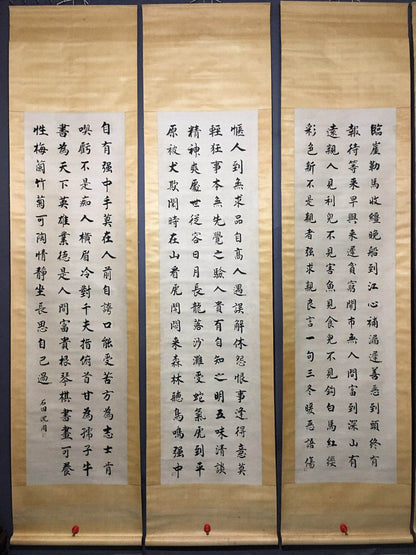 臨崖勒馬收韁晚船到江心補漏遲善惡到頭終有
報待等來早與來遲貧窮鬧市無人問富到深山有
遠親人見利兒不見害魚見食兒不見鈎白馬紅纓
彩色新不是親者强求親良言一句三冬暖惡語傷
人到無求品自高人遇誤解休怨恨事逢得意莫
輕狂事本無先覺之驗人貴有自知之明五味清談
精神爽處世從容日月長龍落沙灘受蛇氣虎到平
原被犬欺閑時在山看虎鬥悶來森林聽鳥鳴强中
自有强中手莫在人前自誇口能受苦方為志士肯
喫虧不是痴人横眉冷對千夫指俯首甘為孺子牛
書為天下英雄業德是人間富貴根琴棋書畫可養
性梅蘭竹菊可陶情靜坐長思自己過
石田沈周